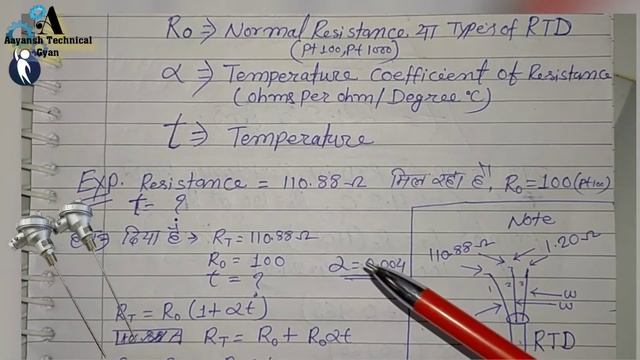 Aayansh Technical
Gyan
R₀ ⇒ Normal Resistance या Types of RTD
(Pt100, Pt 1000)
α ⇒ Temperature Coefficient of Resistance
(ohms per ohm/Degree °C)
t ⇒ Temperature
Exp. Resistance = 110.88Ω मिल रहा है, R₀ = 100 (Pt100)
t = ?
दिया है → R_T = 110.88Ω
R₀ = 100
t = ?
α = 0.004
R_T = R₀ (1 + αt)
R_T = R₀ + R₀αt
Note
110.88Ω
1.20Ω
1 2 3
W
W
RTD